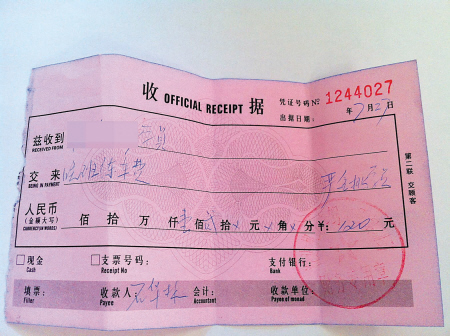 收 OFFICIAL RECEIPT 据
凭证号码 № 1244027
出据日期: 年 7 月 2 日
兹收到
RECEIVED FROM
交来
BEING IN PAYMENT
人民币
(金额大写)
(CURRENCY IN WORDS)
佰 拾 万 仟 壹 佰 贰 拾 × 元 × 角 × 分 ¥: 120 元
第二联 交顾客
□ 现金 □ 支票号码: 支付银行:
Cash Receipt No Bank
填票: 收款人 会计: 收款单位:
Filler Payee Accountant Payee of monad